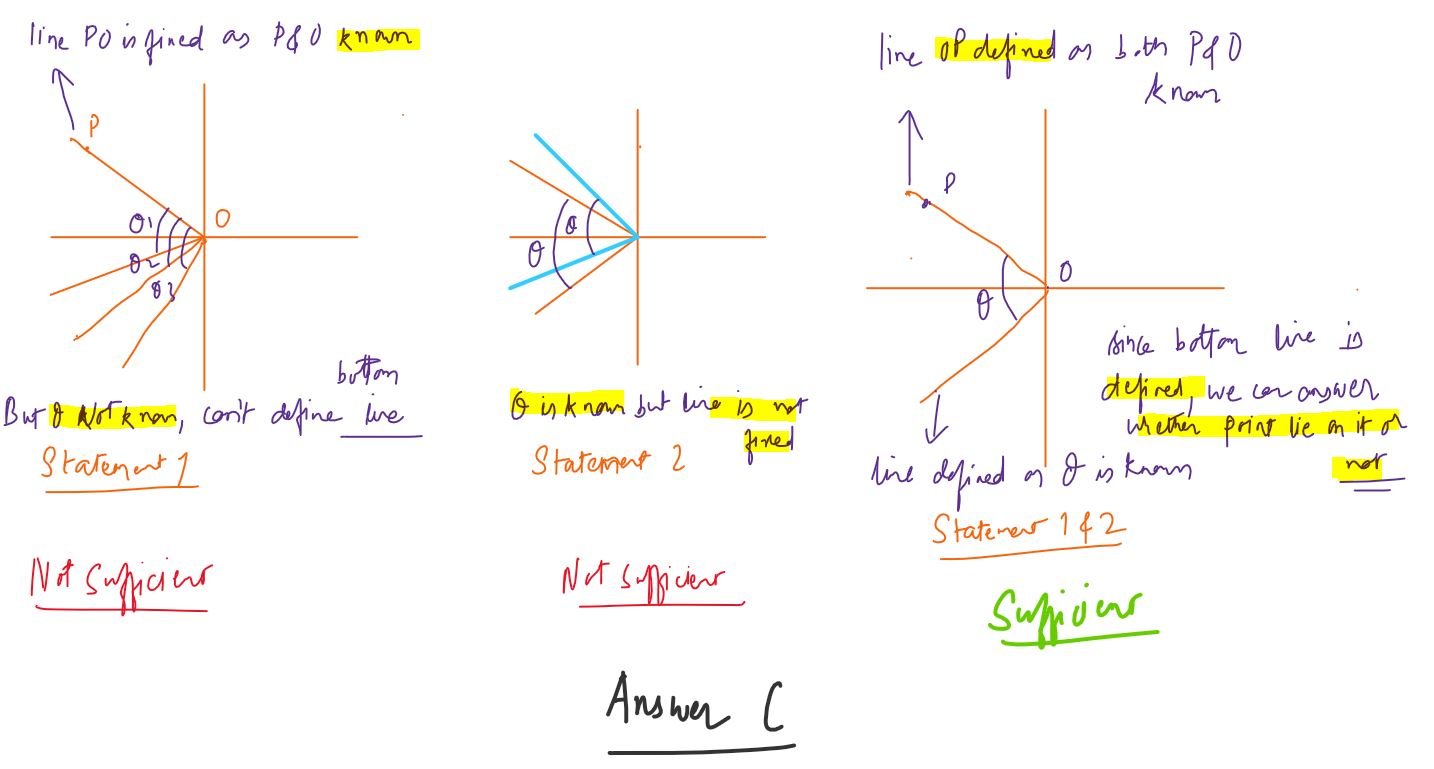 line PO is fixed as P & O known
P
O
θ1
θ2
θ3
But θ Not known, can't define
bottom
line
Statement 1
Not Sufficient
θ
θ
θ is known but line is not
fixed
Statement 2
Not Sufficient
line OP defined as both P & O
known
P
O
θ
since bottom line is
defined, we can answer
whether point lie on it or
not
line defined as θ is known
Statement 1 & 2
Sufficient
Answer C